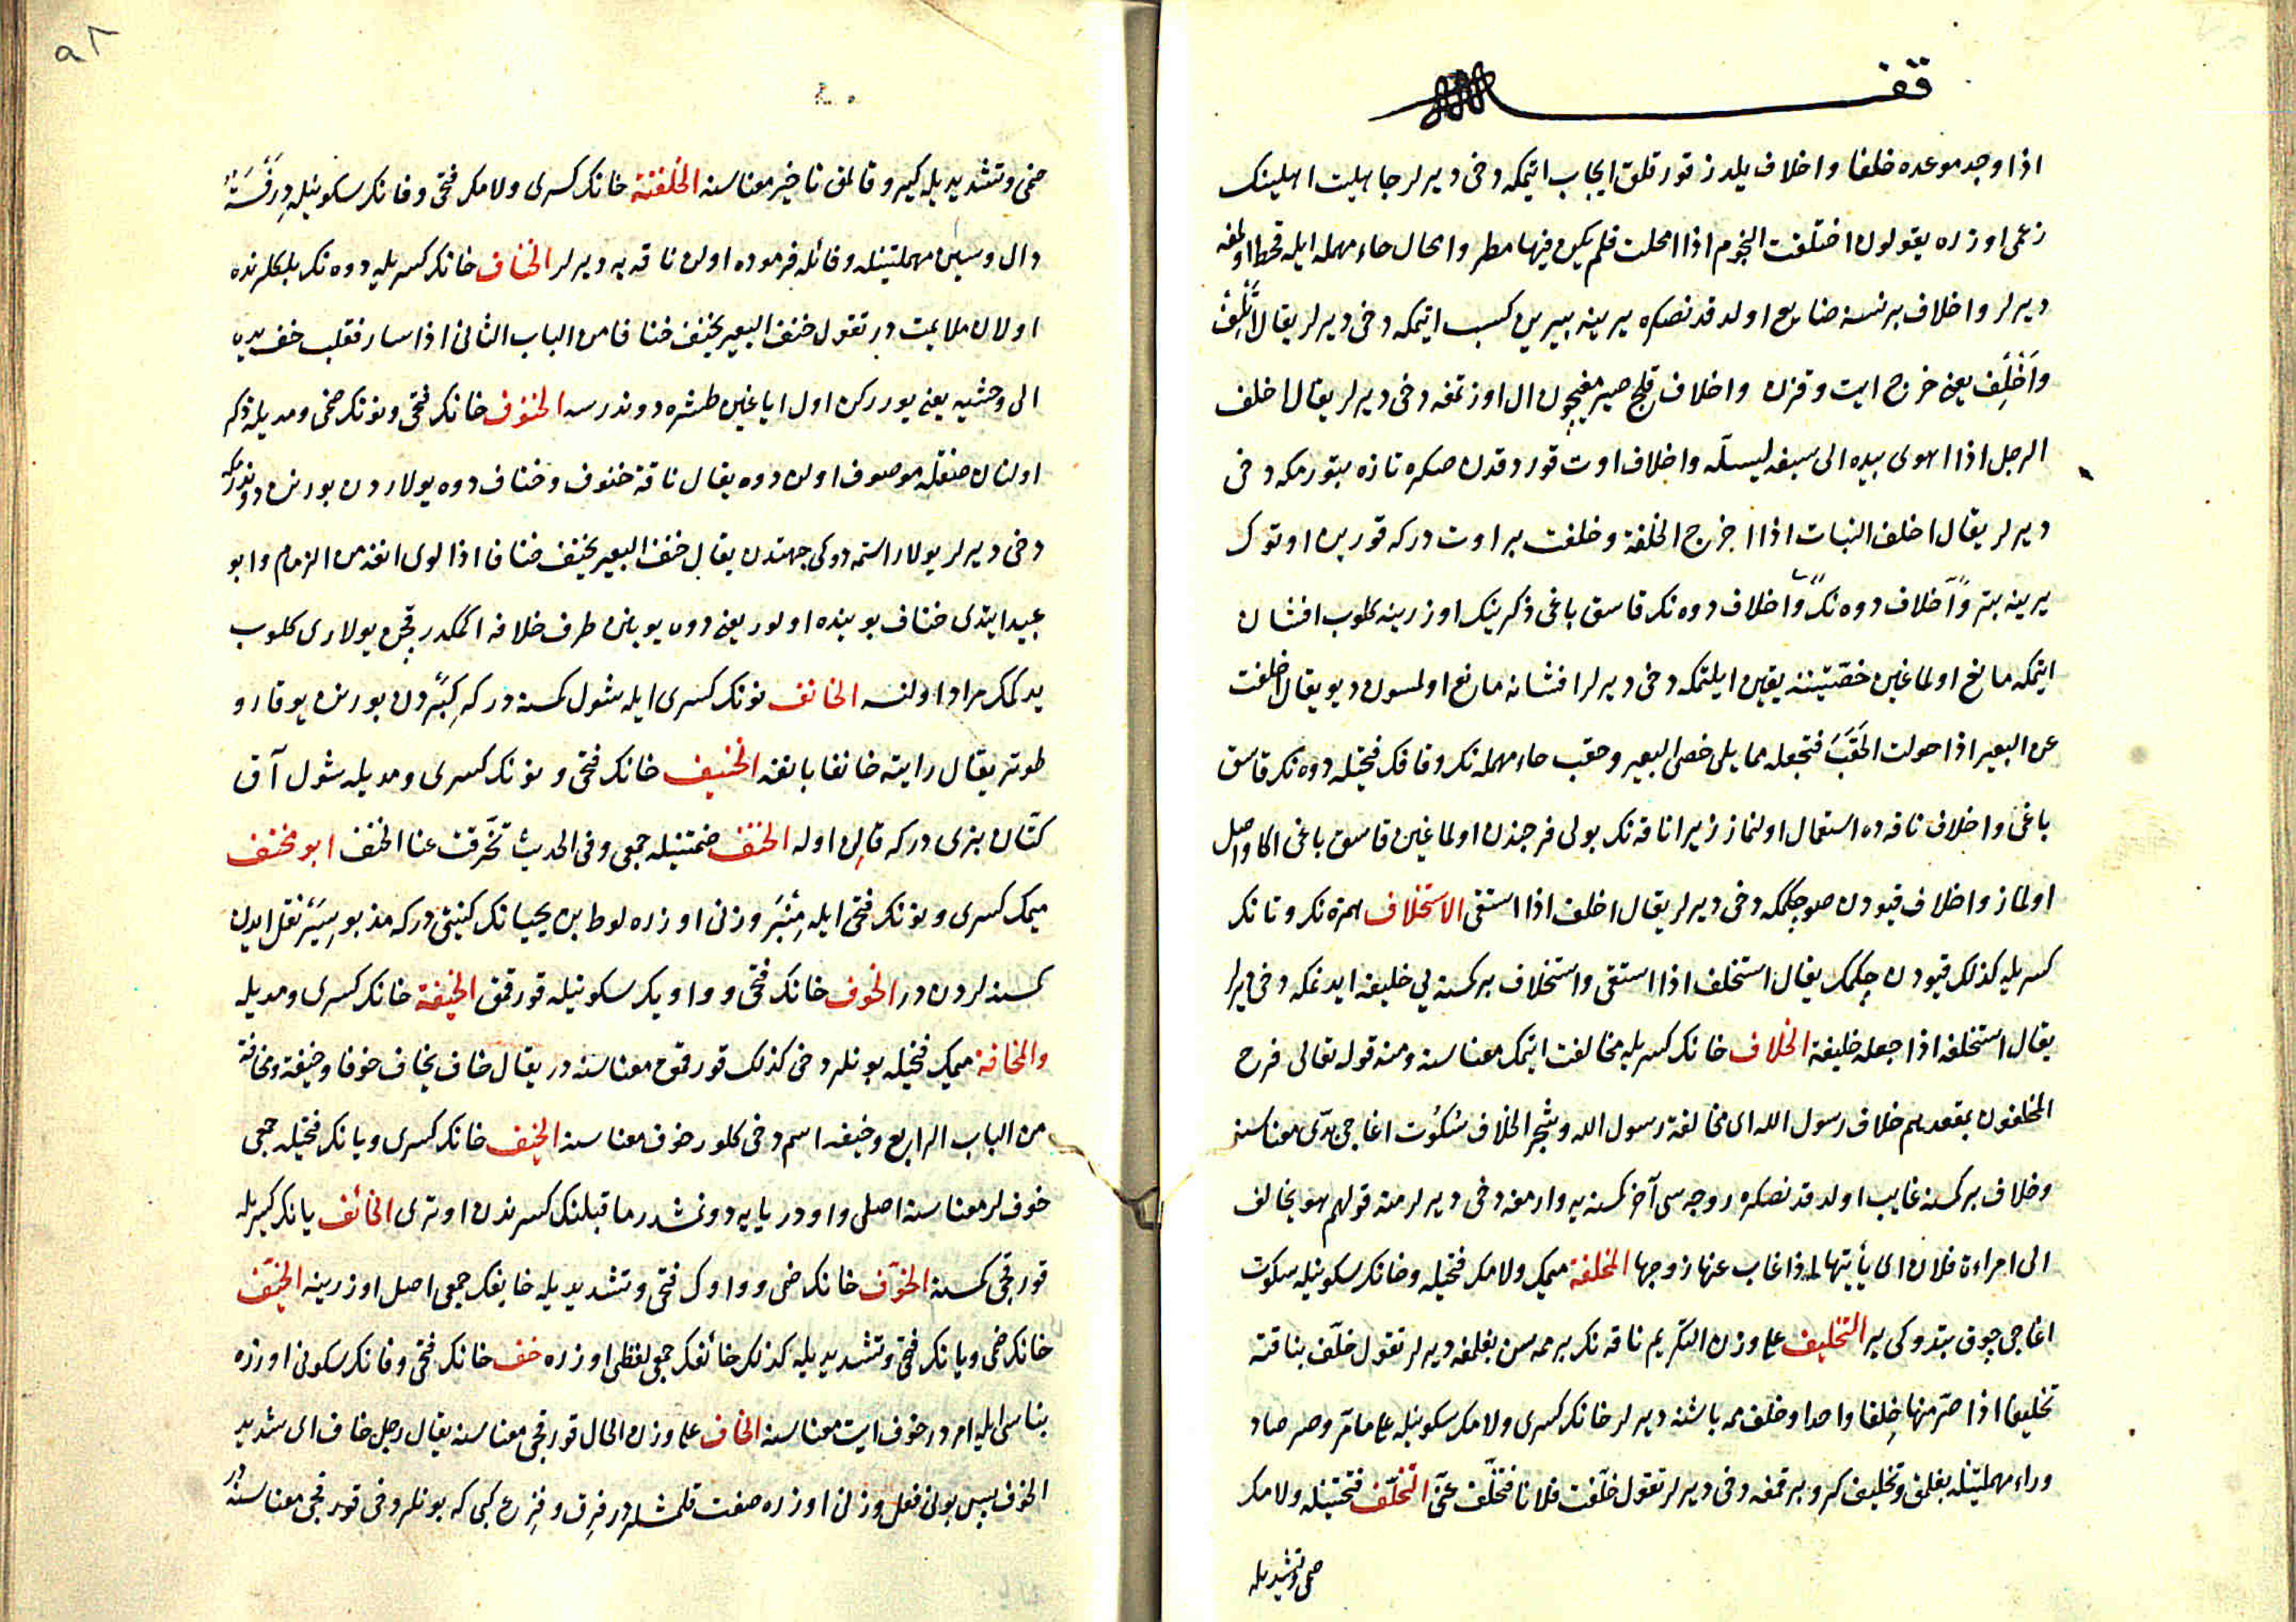 وقف
اذا وجد موعده خلفا واخلاف يلدز قورقلق ايجاب اتمكه دخى ديرلر جاهليت اهلينك
زعمى اوزره يقولون اختلفت النجوم اذا امحلت فلم يكن فيها مطر وامحال حاء مهمله ايله قحط اولمغه
ديرلر واخلاف بر نسنه ضايع اولدقدنصكره يرينه بيرين كسب اتمكه دخى ديرلر يقال اتلف
واخلف يعنى خرج ايت وقزن واخلاف قلج صيرمغيچون ال اوزتمغه دخى ديرلر يقال اخلف
الرجل اذا اهوى بيده الى سيفه ليسله واخلاف اوت قوردقدن صكره تازه بتورمكه دخى
ديرلر يقال اخلف النبات اذا اخرج الخلفة وخلفت بر اوت دركه قورين اوتوك
يرينه بتر واخلاف دوه نك واخلاف دوه نك قاسق باغى ذكرينك اوزرينه كلوب افشان
اتمكه مانع اولماغين خصيتينه يقين ايلتمكه دخى ديرلر افشانه مانع اولمسون ديو يقال اخلفت
عن البعير اذا حولت الحقب فتجعله مما يلى خصى البعير وحقب حاء مهمله نك وقافك فتحيله دوه نك قاسق
باغى واخلاف ناقه ده استعمال اولنماز زيرا ناقه نك بولى فرجندن اولماغين قاسق باغى اكا واصل
اولماز واخلاف قيودن صو چكمكه دخى ديرلر يقال اخلف اذا استقى الاستخلاف همزه نك وتانك
كسريله كذلك قيودن چكمك يقال استخلف اذا استقى واستخلاف بر كسنه يى خليفه ايدنمكه دخى ديرلر
يقال استخلفه اذا جعله خليفة الخلاف خانك كسريله مخالفت اتمك معناسنه ومنه قوله تعالى فرح
المخلفون بمقعدهم خلاف رسول الله اى مخالفة رسول الله وشجر الخلاف سكوت اغاجى ديمك معناسنه
وخلاف بر كسنه غايب اولدقدنصكره زوجه سى آخر كسنه يه وارمغه دخى ديرلر منه قولهم هو يخالف
الى امراءة فلان اى يأتيها اذا غاب عنها زوجها المخلفة ميمك ولامك فتحيله وخانك سكونيله سكوت
اغاجى چوق بتدوكى ير التخليف على وزن التكريم ناقه نك بر ممه سن بغلمغه ديرلر تقول خلف بناقته
تخليفا اذا صر منها خلفا واحدا وخلف ممه باشنه ديرلر خانك كسرى ولامك سكونيله على ما مر وصر صاد
وراء مهملتينله بغلمق وتخليف كرو برقمغه دخى ديرلر تقول خلفت فلانا فتخلف عنى التخلف فتحتينله ولامك
ضمى وتشديديله
٩٨
ضمى وتشديديله كيرو قالمق تاخير معناسنه الخلفنة خانك كسرى ولامك فتحى وفانك سكونيله درفسة
دال وسين مهملتينله وفائله فرموده اولن ناقه يه ديرلر الخناف خانك كسريله دوه نك بلكلرنده
اولان ملايمت در تقول خنف البعير يخنف خنافا من الباب الثانى اذا سار فقلب خف يده
الى وحشيه يعنى يورركن اول اياغين طشره دوندرسه الخنوف خانك فتحى ونونك ضمى ومديله ذكر
اولنان صفتله موصوف اولن دوه يقال ناقة خنوف وخناف دوه يولاردن بورنن دوندرمكه
دخى ديرلر يولار استمدوكى جهتدن يقال خنف البعير يخنف خنافا اذا لوى انفه من الزمام وابو
عبيد ايتدى خناف بوينده اولور يعنى دوه بوينن طرف خلافه اكمكدر قچن يولارى كلوب
يدكمك مراد اولنسه الخانف نونك كسرى ايله شول كمسنه دركه كبردن بورنن يوقارو
طوتر يقال رايته خانفا بانفه الخنيف خانك فتحى ونونك كسرى ومديله شول آق
كتان بزى دركه قالن اوله الخنف ضمتينله جمعى وفى الحديث تخرقت عنا الخنف ابو مخنف
ميمك كسرى ونونك فتحى ايله منبر وزنى اوزره لوط بن يحيانك كنيتى دركه مذبور سير نقل ايدن
كمسنه لردن در الخوف خانك فتحى وواويك سكونيله قورقمق الخيفة خانك كسرى ومديله
والمخافة ميمك فتحيله بونلر دخى كذلك قورقمق معناسنه در يقال خاف يخاف خوفا وخيفة ومخافة
من الباب الرابع وخيفه اسم دخى كلور خوف معناسنه الخيف خانك كسرى ويانك فتحيله جمعى
خوفلر معناسنه اصلى واودر يايه دونمشدر ماقبلنك كسرندن اوترى الخائف يانك كسريله
قورقجى كمسنه الخوف خانك ضمى وواوك فتحى وتشديديله خايفك جمعى اصل اوزرينه الخيف
خانك ضمى ويانك فتحى وتشديديله كذلك خائفك جمعى لفظى اوزره خف خانك فتحى وفانك سكونى اوزره
بناسى ايله امر در خوف ايت معناسنه الخاف على وزن الحال قورقجى معناسنه يقال رجل خاف اى شديد
الخوف پس بونى فعل وزنى اوزره صفت قلمشلردر فرق وفزع كبى كه بونلر دخى قورقجى معناسنه در